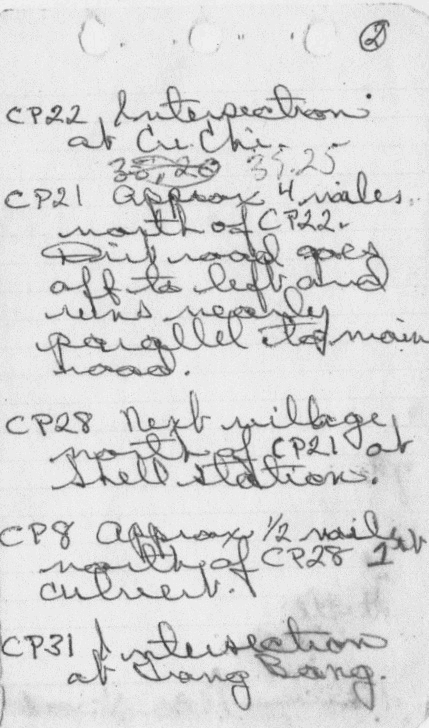 2
CP22 Intersection
at Cu Chi.
39.25
CP21 Approx 4 miles
north of CP22.
Dirt road goes
off to left and
runs nearly
parallel to main
road.
CP28 Next village
north of CP21 at
Shell station.
CP8 Approx 1/2 mile
north of CP28 1st
culvert.
CP31 Intersection
at Trang Bang.